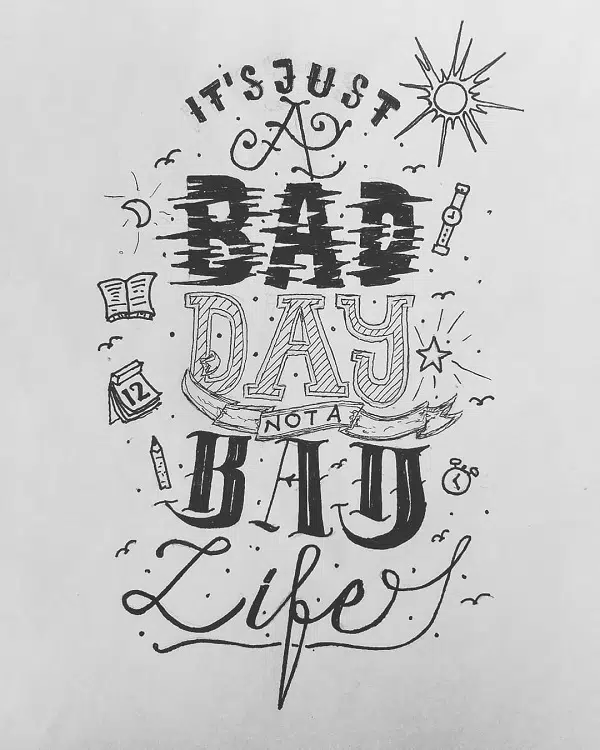 IT'S JUST
A
BAD
DAY
NOT A
BAD
Life
12